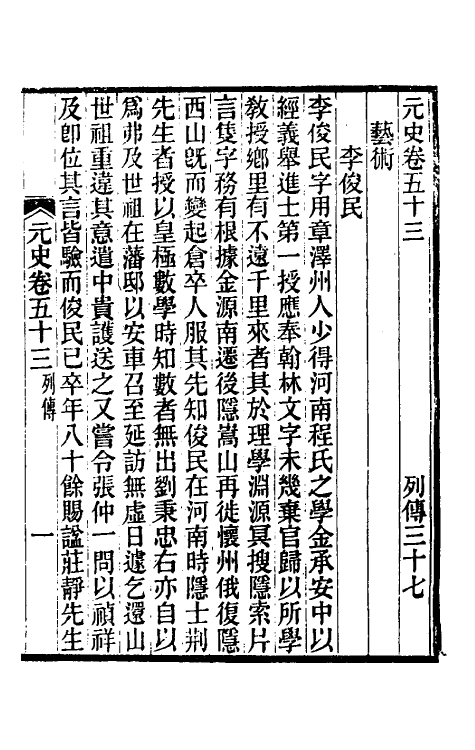 元史卷五十三　列傳三十七
藝術
李俊民
李俊民字用章澤州人少得河南程氏之學金承安中以
經義舉進士第一授應奉翰林文字未幾棄官歸以所學
敎授鄉里有不遠千里來者其於理學淵源冥搜隱索片
言隻字務有根據金源南遷後隱嵩山再徙懷州俄復隱
西山旣而變起倉卒人服其先知俊民在河南時隱士荆
先生者授以皇極數學時知數者無出劉秉忠右亦自以
爲弗及世祖在藩邸以安車召至延訪無虛日遽乞還山
世祖重違其意遣中貴護送之又嘗令張仲一問以禎祥
及卽位其言皆驗而俊民已卒年八十餘賜諡莊靜先生
元史卷五十三　列傳　一